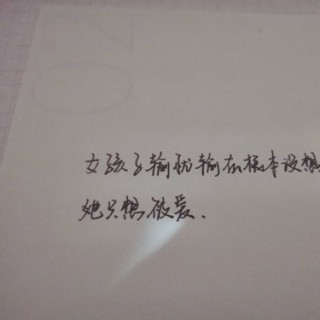 女孩子输就输在根本没想
她只想被爱.